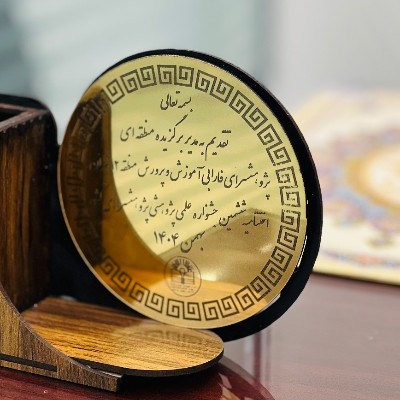 بسمه تعالی
تقدیم به مدیر برگزیده منطقه ای
پژوهشسرای فارابی آموزش و پرورش منطقه ۲
اختتامیه ششمین جشنواره علمی پژوهشی پژوهشسرای
بهمن ۱۴۰۴